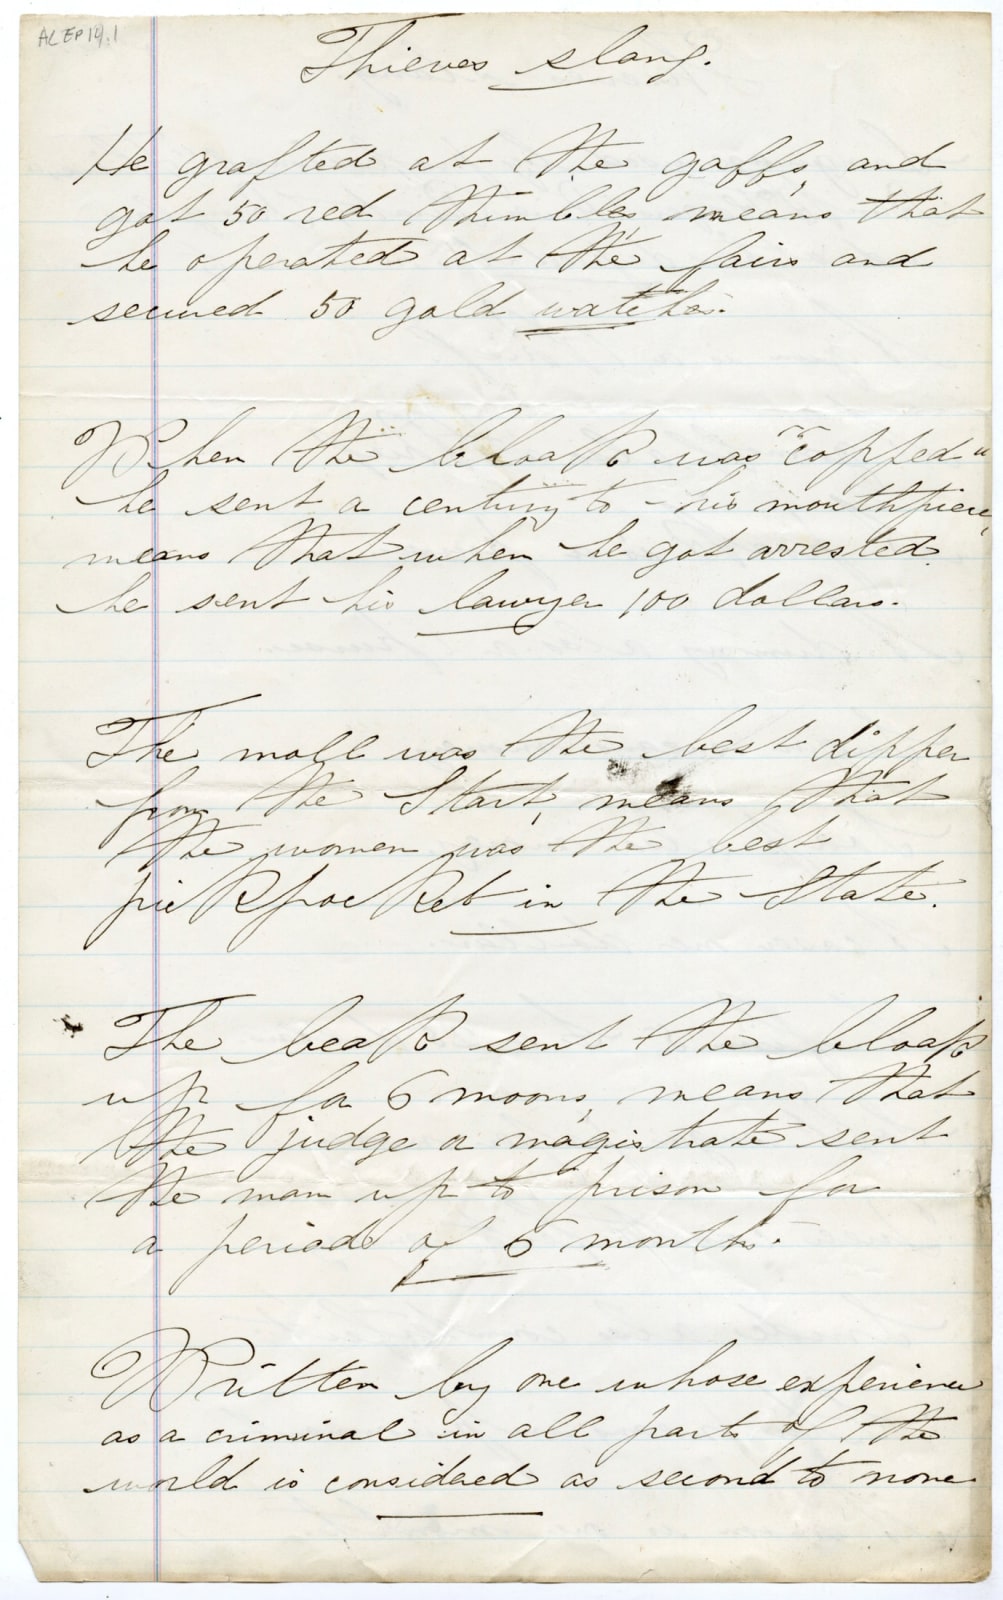 ALEP14.1
Thieves slang.
He grafted at the gaffs, and
got 50 red thimbles means that
he operated at the fairs and
secured 50 gold watches.
When the bloak was "copped"
he sent a century to his mouthpiece,
means that when he got arrested
he sent his lawyer 100 dollars.
The moll was the best dipper
from the Start, means that
the women was the best
pickpocket in the State.
The beak sent the bloak
up for 6 moons, means that
the judge or magistrate sent
the man up to prison for
a period of 6 months.
Written by one whose experience
as a criminal in all parts of the
world is considered as second to none